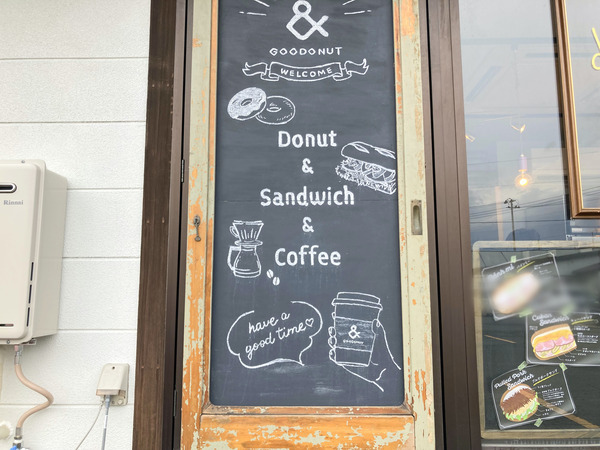 &
GOODONUT
WELCOME
Donut
&
Sandwich
&
Coffee
have a
good time♡
&
GOODONUT
Rinnai
Cuban
Sandwich
Pulled Pork
Sandwich